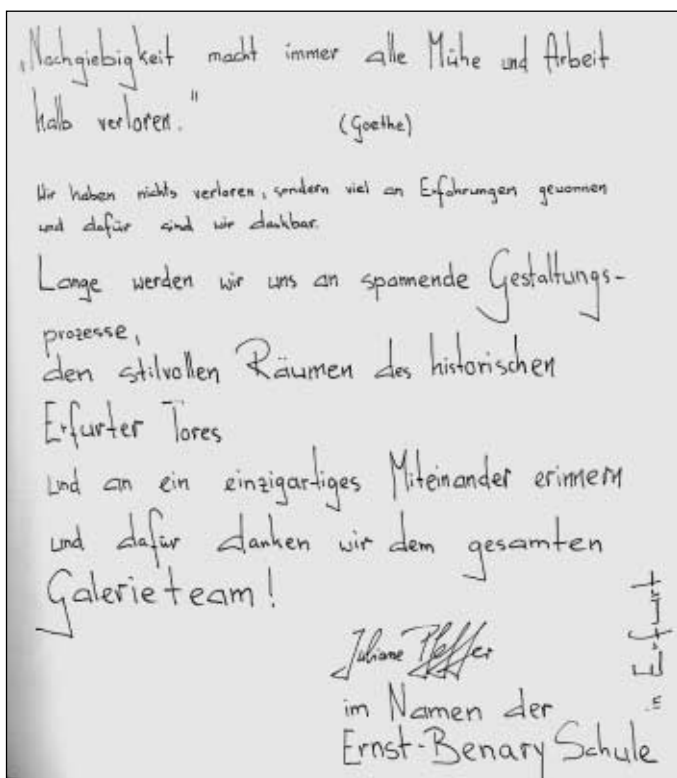 „Nachgiebigkeit macht immer alle Mühe und Arbeit
halb verloren."
(Goethe)
Wir haben nichts verloren, sondern viel an Erfahrungen gewonnen
und dafür sind wir dankbar.
Lange werden wir uns an spannende Gestaltungs-
prozesse,
den stilvollen Räumen des historischen
Erfurter Tores
und an ein einzigartiges Miteinander erinnern
und dafür danken wir dem gesamten
Galerieteam!
Juliane Pfeffer
im Namen der
Ernst-Benary Schule
in Erfurt